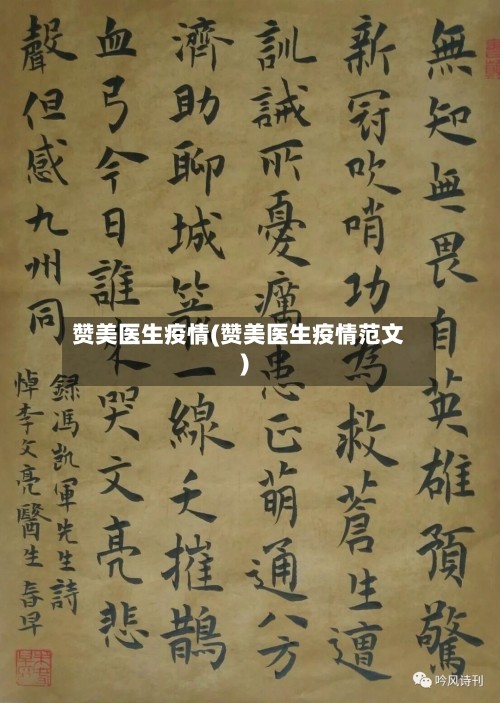 無知無畏自英雄預驚
新冠吹哨功為救蒼生遭
訓誡所憂癘患正萌通八方
濟助聊城箭一線夭摧鵲
血弓今日誰來哭文亮悲
聲但感九州同
錄馮凱軍先生詩
悼李文亮醫生 春早
赞美医生疫情(赞美医生疫情范文
)
吟风诗刊